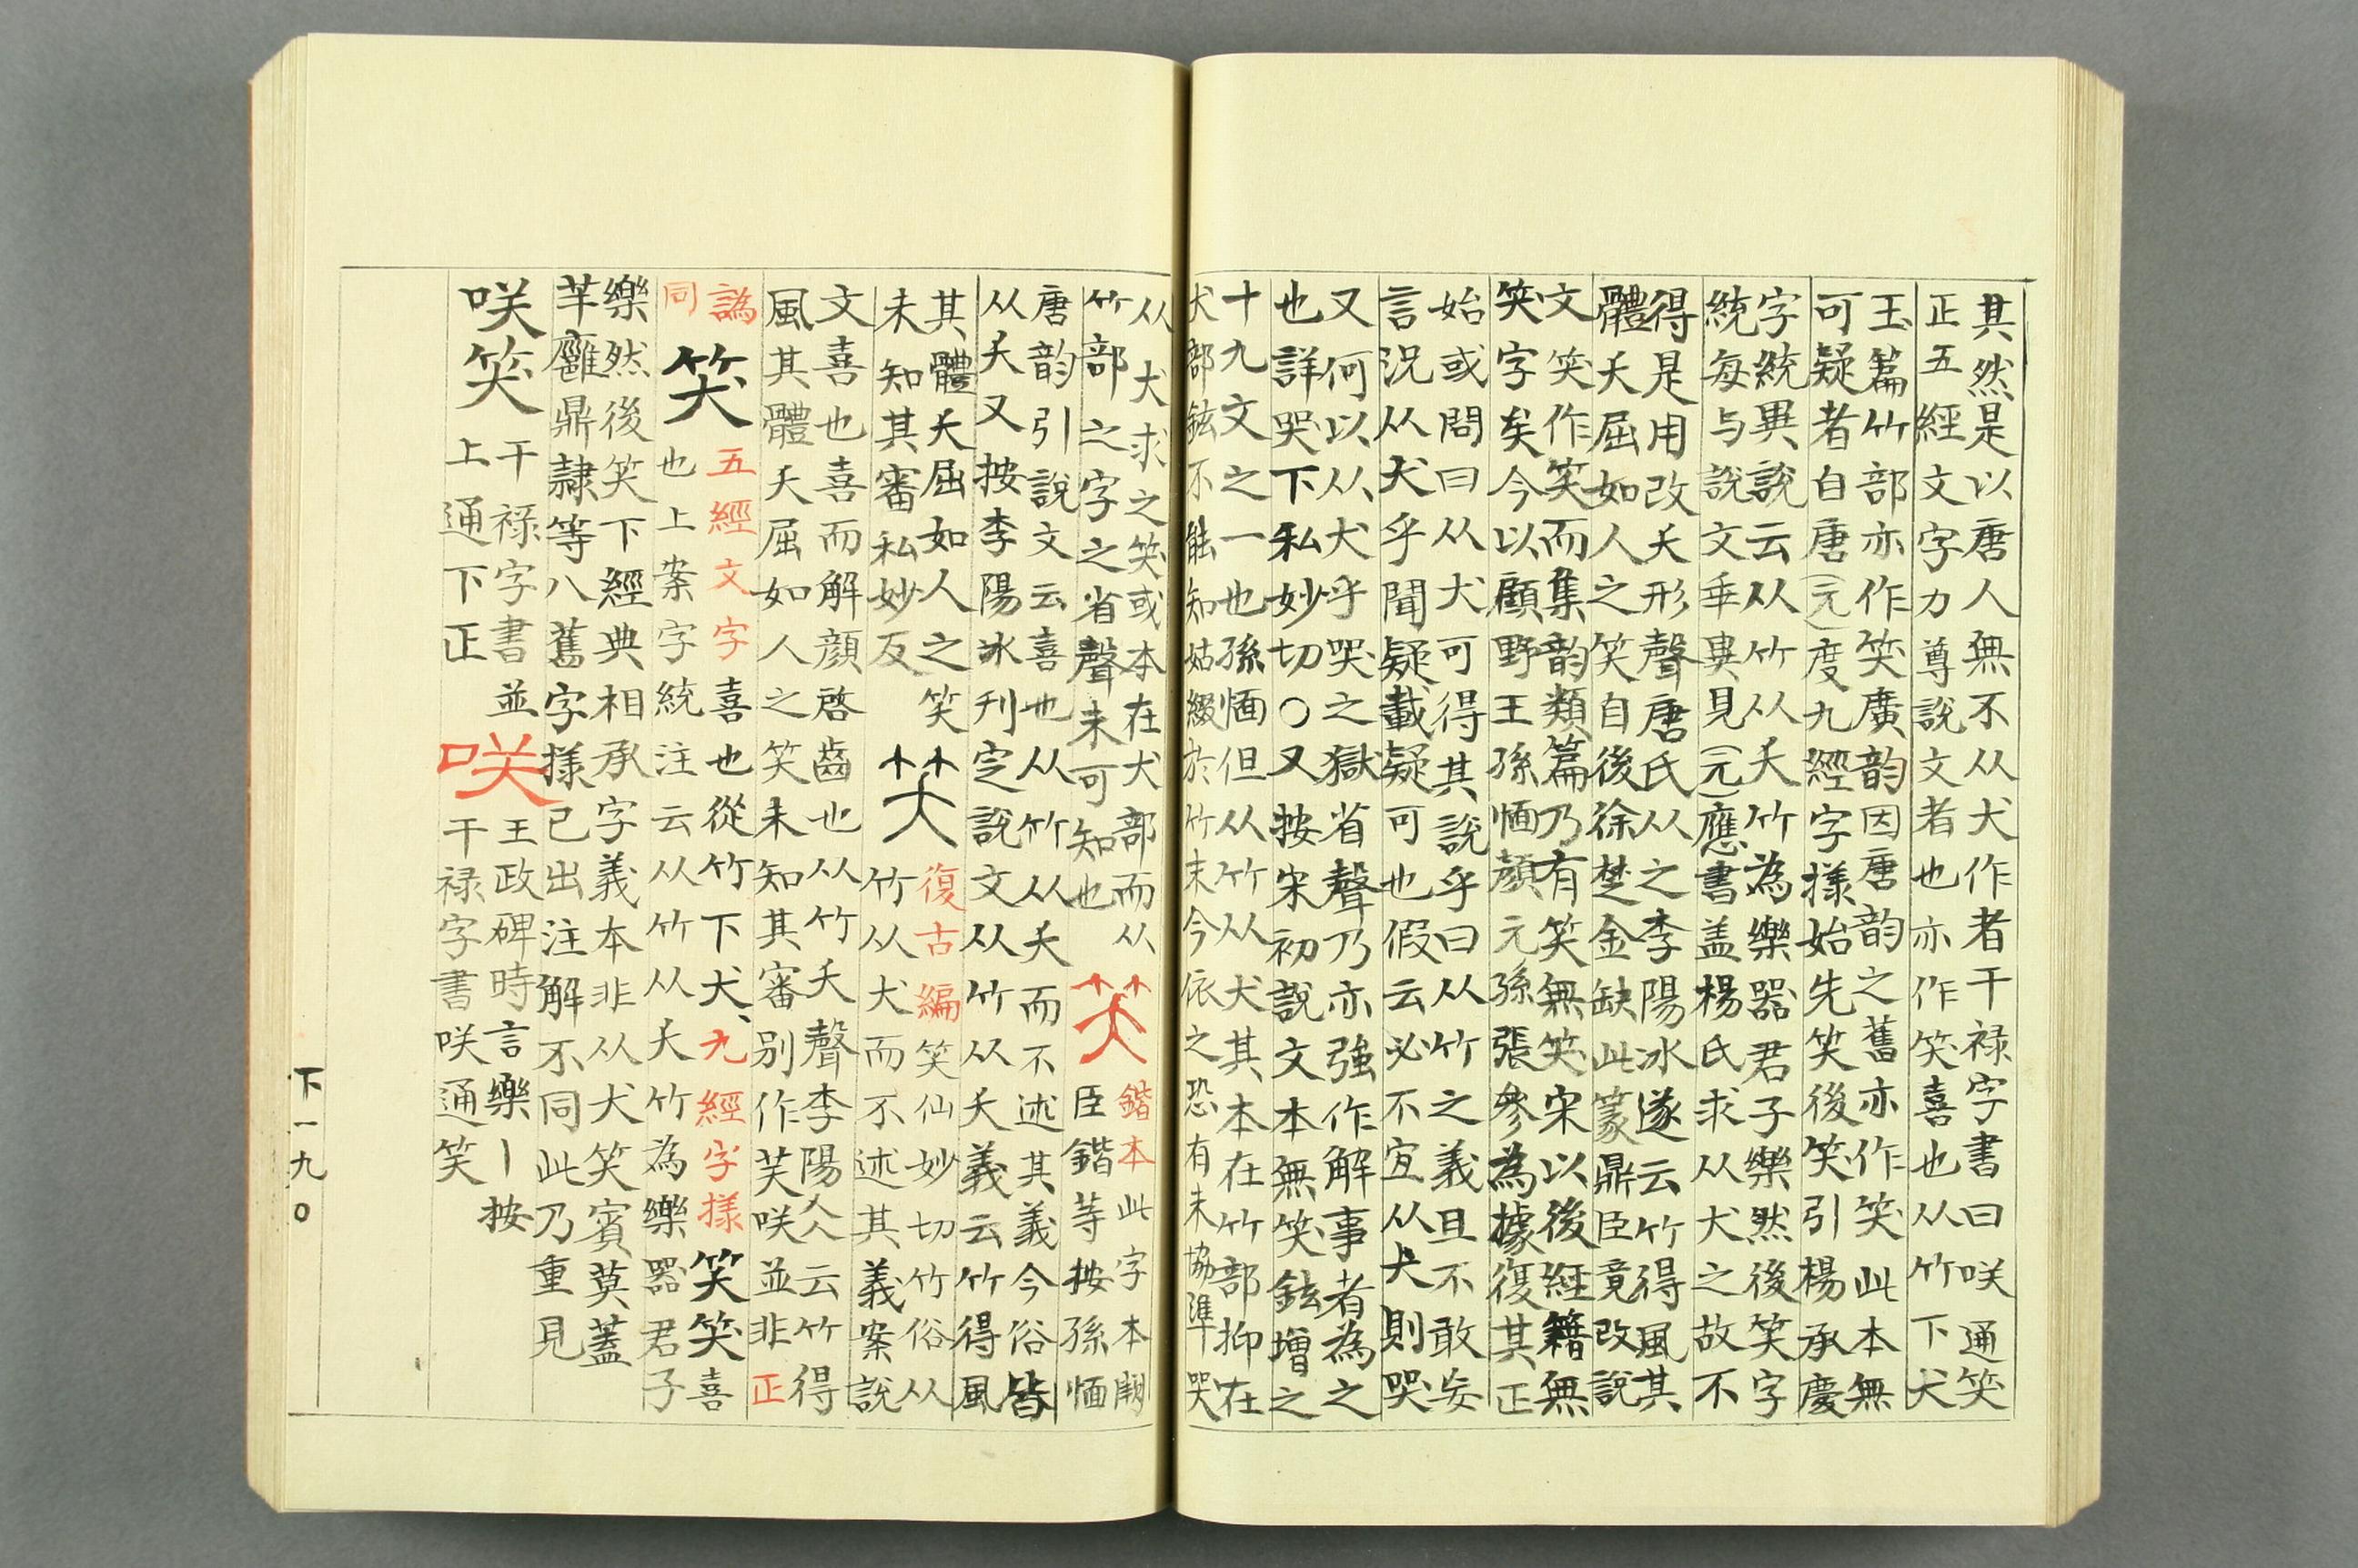 其然是以唐人無不从犬作者干禄字書曰咲通笑
正五經文字力尊說文者也亦作笑喜也从竹下犬
玉篇竹部亦作笑廣韵因唐韵之舊亦作笑此本無
可疑者自唐(元)度九經字樣始先笑後笑引楊承慶
字統異說云从竹从夭竹為樂器君子樂然後笑字
統每与說文乖異見(元)應書盖楊氏求从犬之故不
得是用改夭形聲唐氏从之李陽冰遂云竹得風其
體夭屈如人之笑自後徐楚金缺此篆鼎臣竟改說
文笑作笑而集韵類篇乃有笑無笑宋以後經籍無
笑字矣今以顧野王孫愐顔元孫張參為據復其正
始或問曰从犬可得其說乎曰从竹之義且不敢妄
言況从犬乎聞疑載疑可也假云必不宐从犬則哭
又何以从犬乎哭之獄省聲乃亦強作解事者為之
也詳哭下私妙切○又按宋初說文本無笑鉉增之
十九文之一也孫愐但从竹从犬其本在竹部抑在
犬部鉉不能知姑綴於竹末今依之恐有未協準哭
从犬求之笑或本在犬部而从
竹部之字之省聲未可知也
笑
鍇本此字本闕
臣鍇等按孫愐
唐韵引說文云喜也从竹从夭而不述其義今俗皆
从夭又按李陽冰刋定說文从竹从夭義云竹得風
其體夭屈如人之笑
未知其審私妙反
笑
復古編笑仙妙切竹俗从
竹从犬而不述其義案說
文喜也喜而解顔啓齒也从竹夭聲李陽仌云竹得
風其體夭屈如人之笑未知其審別作芺咲並非正
譌
同
笑
五經文字喜也從竹下犬、九經字樣笑笑喜
也上案字統注云从竹从夭竹為樂器君子
樂然後笑下經典相承字義本非从犬笑賓莫蓋
芉雝鼎隷等八舊字樣已出注解不同此乃重見
咲笑
干禄字書並
上通下正
咲
王政碑時言樂丨按
干禄字書咲通笑
下一九〇